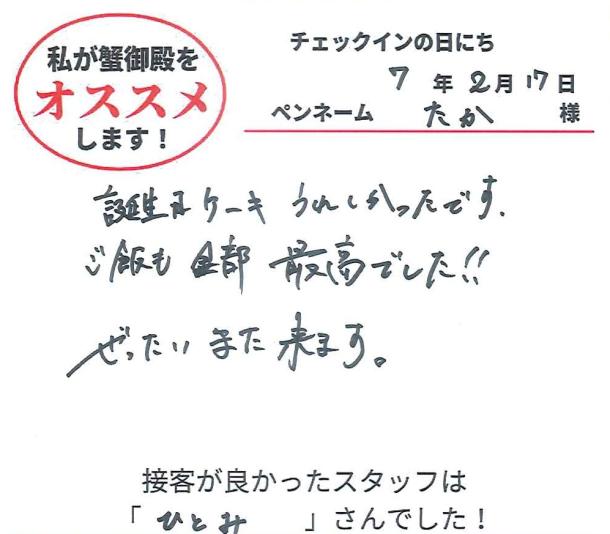 私が蟹御殿を
オススメ
します！
チェックインの日にち
7年2月17日
ペンネーム たか 様
誕生日ケーキ うれしかったです.
ご飯も 全部 最高でした!!
ぜったい また 来ます。
接客が良かったスタッフは
「ひとみ」さんでした！